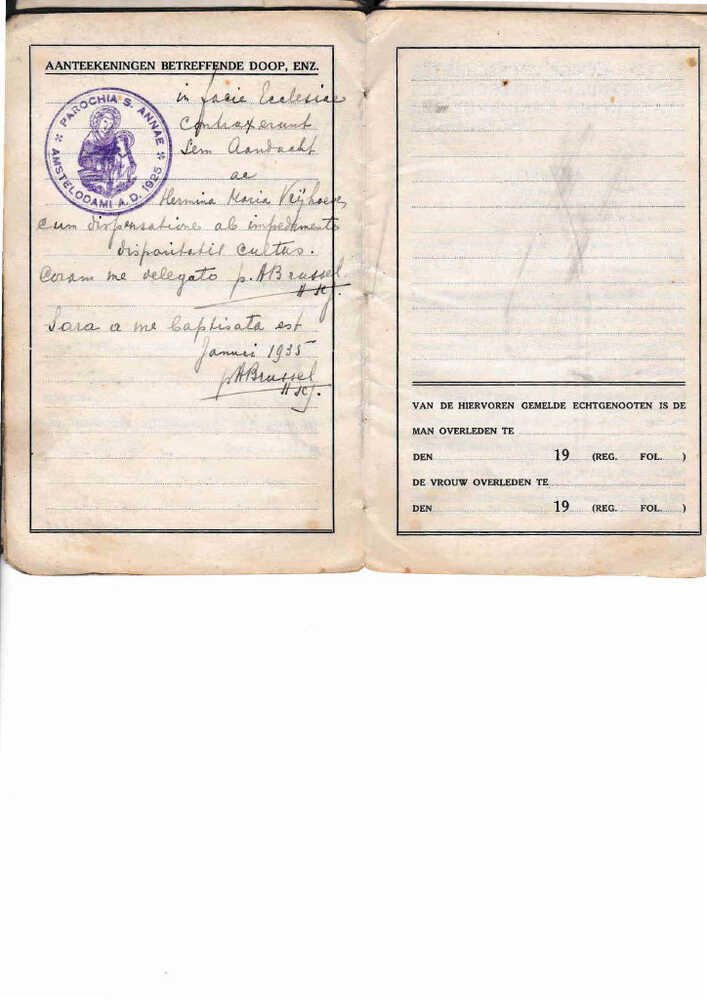 AANTEEKENINGEN BETREFFENDE DOOP, ENZ.
PAROCHIA S. ANNAE
AMSTELODAMI A.D. 1925
in facie Ecclesiae
contraxerunt
Sem Aandacht
ac
Hermina Maria
cum dispensatione ab impedimento
disparitatis cultus.
Coram me delegato p. A Brussel
Sara a me baptisata est
Januari 1935
p A Brussel
VAN DE HIERVOREN GEMELDE ECHTGENOOTEN IS DE
MAN OVERLEDEN TE
DEN 19 (REG. FOL. )
DE VROUW OVERLEDEN TE
DEN 19 (REG. FOL. )